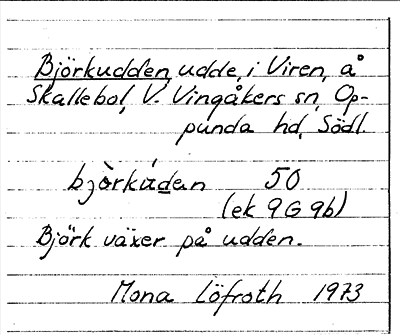 Björkudden, udde, i Viren, å
Skallebol, V. Vingåkers sn, Op-
punda hd, Södl.
bjò̀rkùdan 50
(ek 9G 9b)
Björk växer på udden.
Mona Löfroth 1973